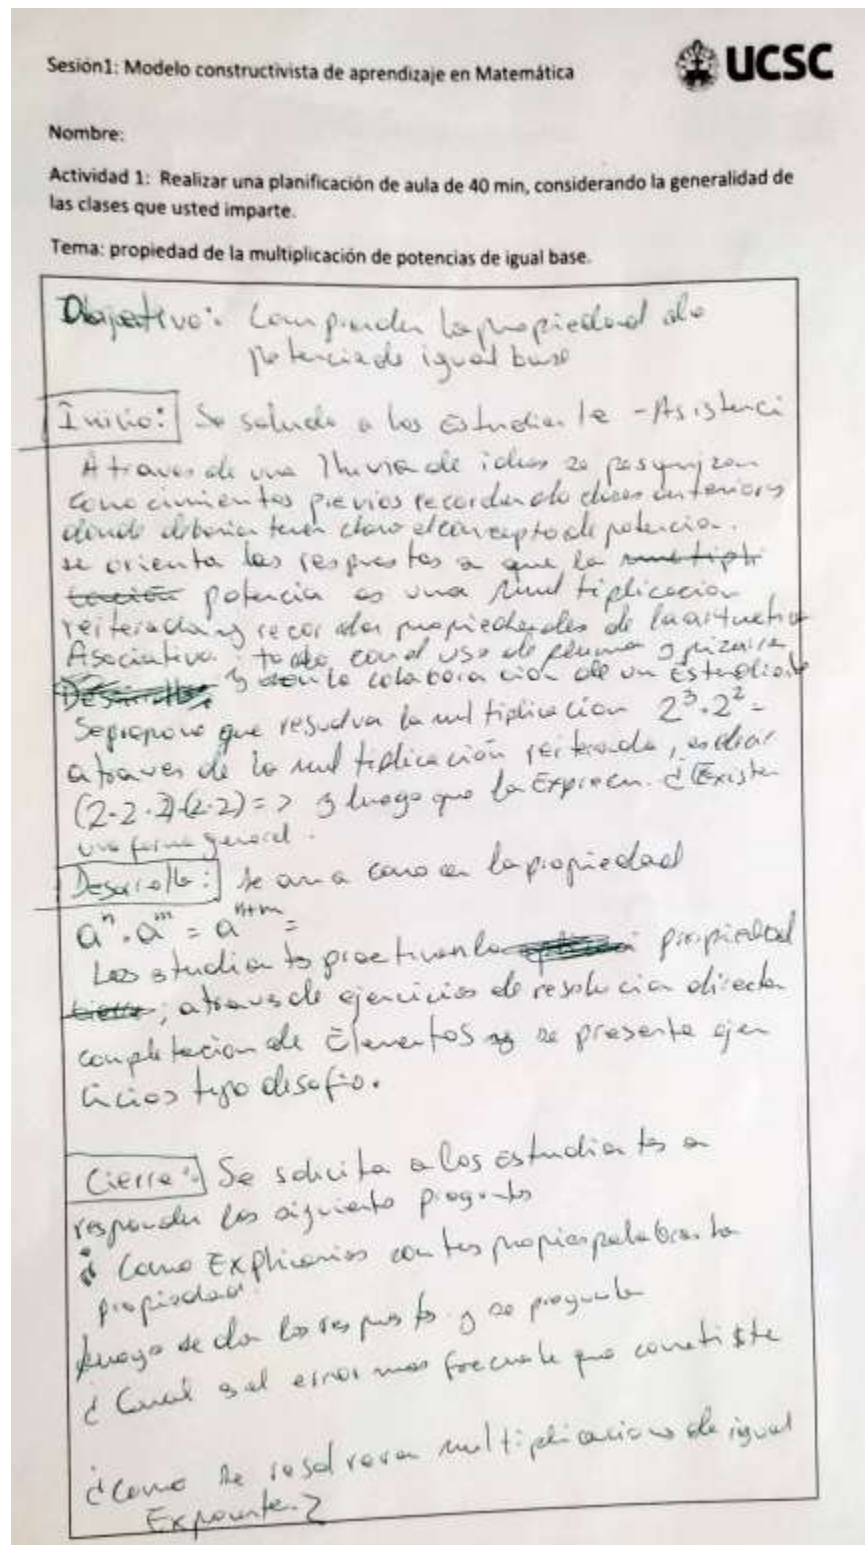 Sesión1: Modelo constructivista de aprendizaje en Matemática
UCSC
Nombre:
Actividad 1: Realizar una planificación de aula de 40 min, considerando la generalidad de
las clases que usted imparte.
Tema: propiedad de la multiplicación de potencias de igual base.
Objetivo: Comprender la propiedad de
potencia de igual base
Inicio: Se saluda a los Estudiante - Asistenci
A traves de una lluvia de ideas se pesquizan
conocimientos previos recordando clases anteriores
donde deberia tener claro el concepto de potencia.
se orienta las respuestas a que la multipli
cación potencia es una multiplicación
reiterada y recordar propiedades de la aritmetica
Asociativa. todo con el uso de plumon y pizarra
Desarrollo y con la colaboración de un Estudiante
Se propone que resuelva la multiplicacion 2³·2² =
a traves de la multiplicación reiterada, es decir
(2·2·2)(2·2) => y luego que la Expresen. ¿Existe
una forma general.
Desarrollo: Se da a conocer la propiedad
aⁿ · aᵐ = aⁿ⁺ᵐ =
Los estudiantes practican la propiedad
cierre; a traves de ejercicios de resolucion directa
completacion de Elementos y se presenta ejer
cicios tipo desafio.
Cierre: Se solicita a los estudiantes a
responder las siguiente pregunta
¿ Como Explicarias con tus propias palabras la
propiedad.
luego se da las respuesta y se pregunta
¿ Cual es el error mas frecuente que cometiste
¿Como se resolvera multiplicaciones de igual
Exponente?